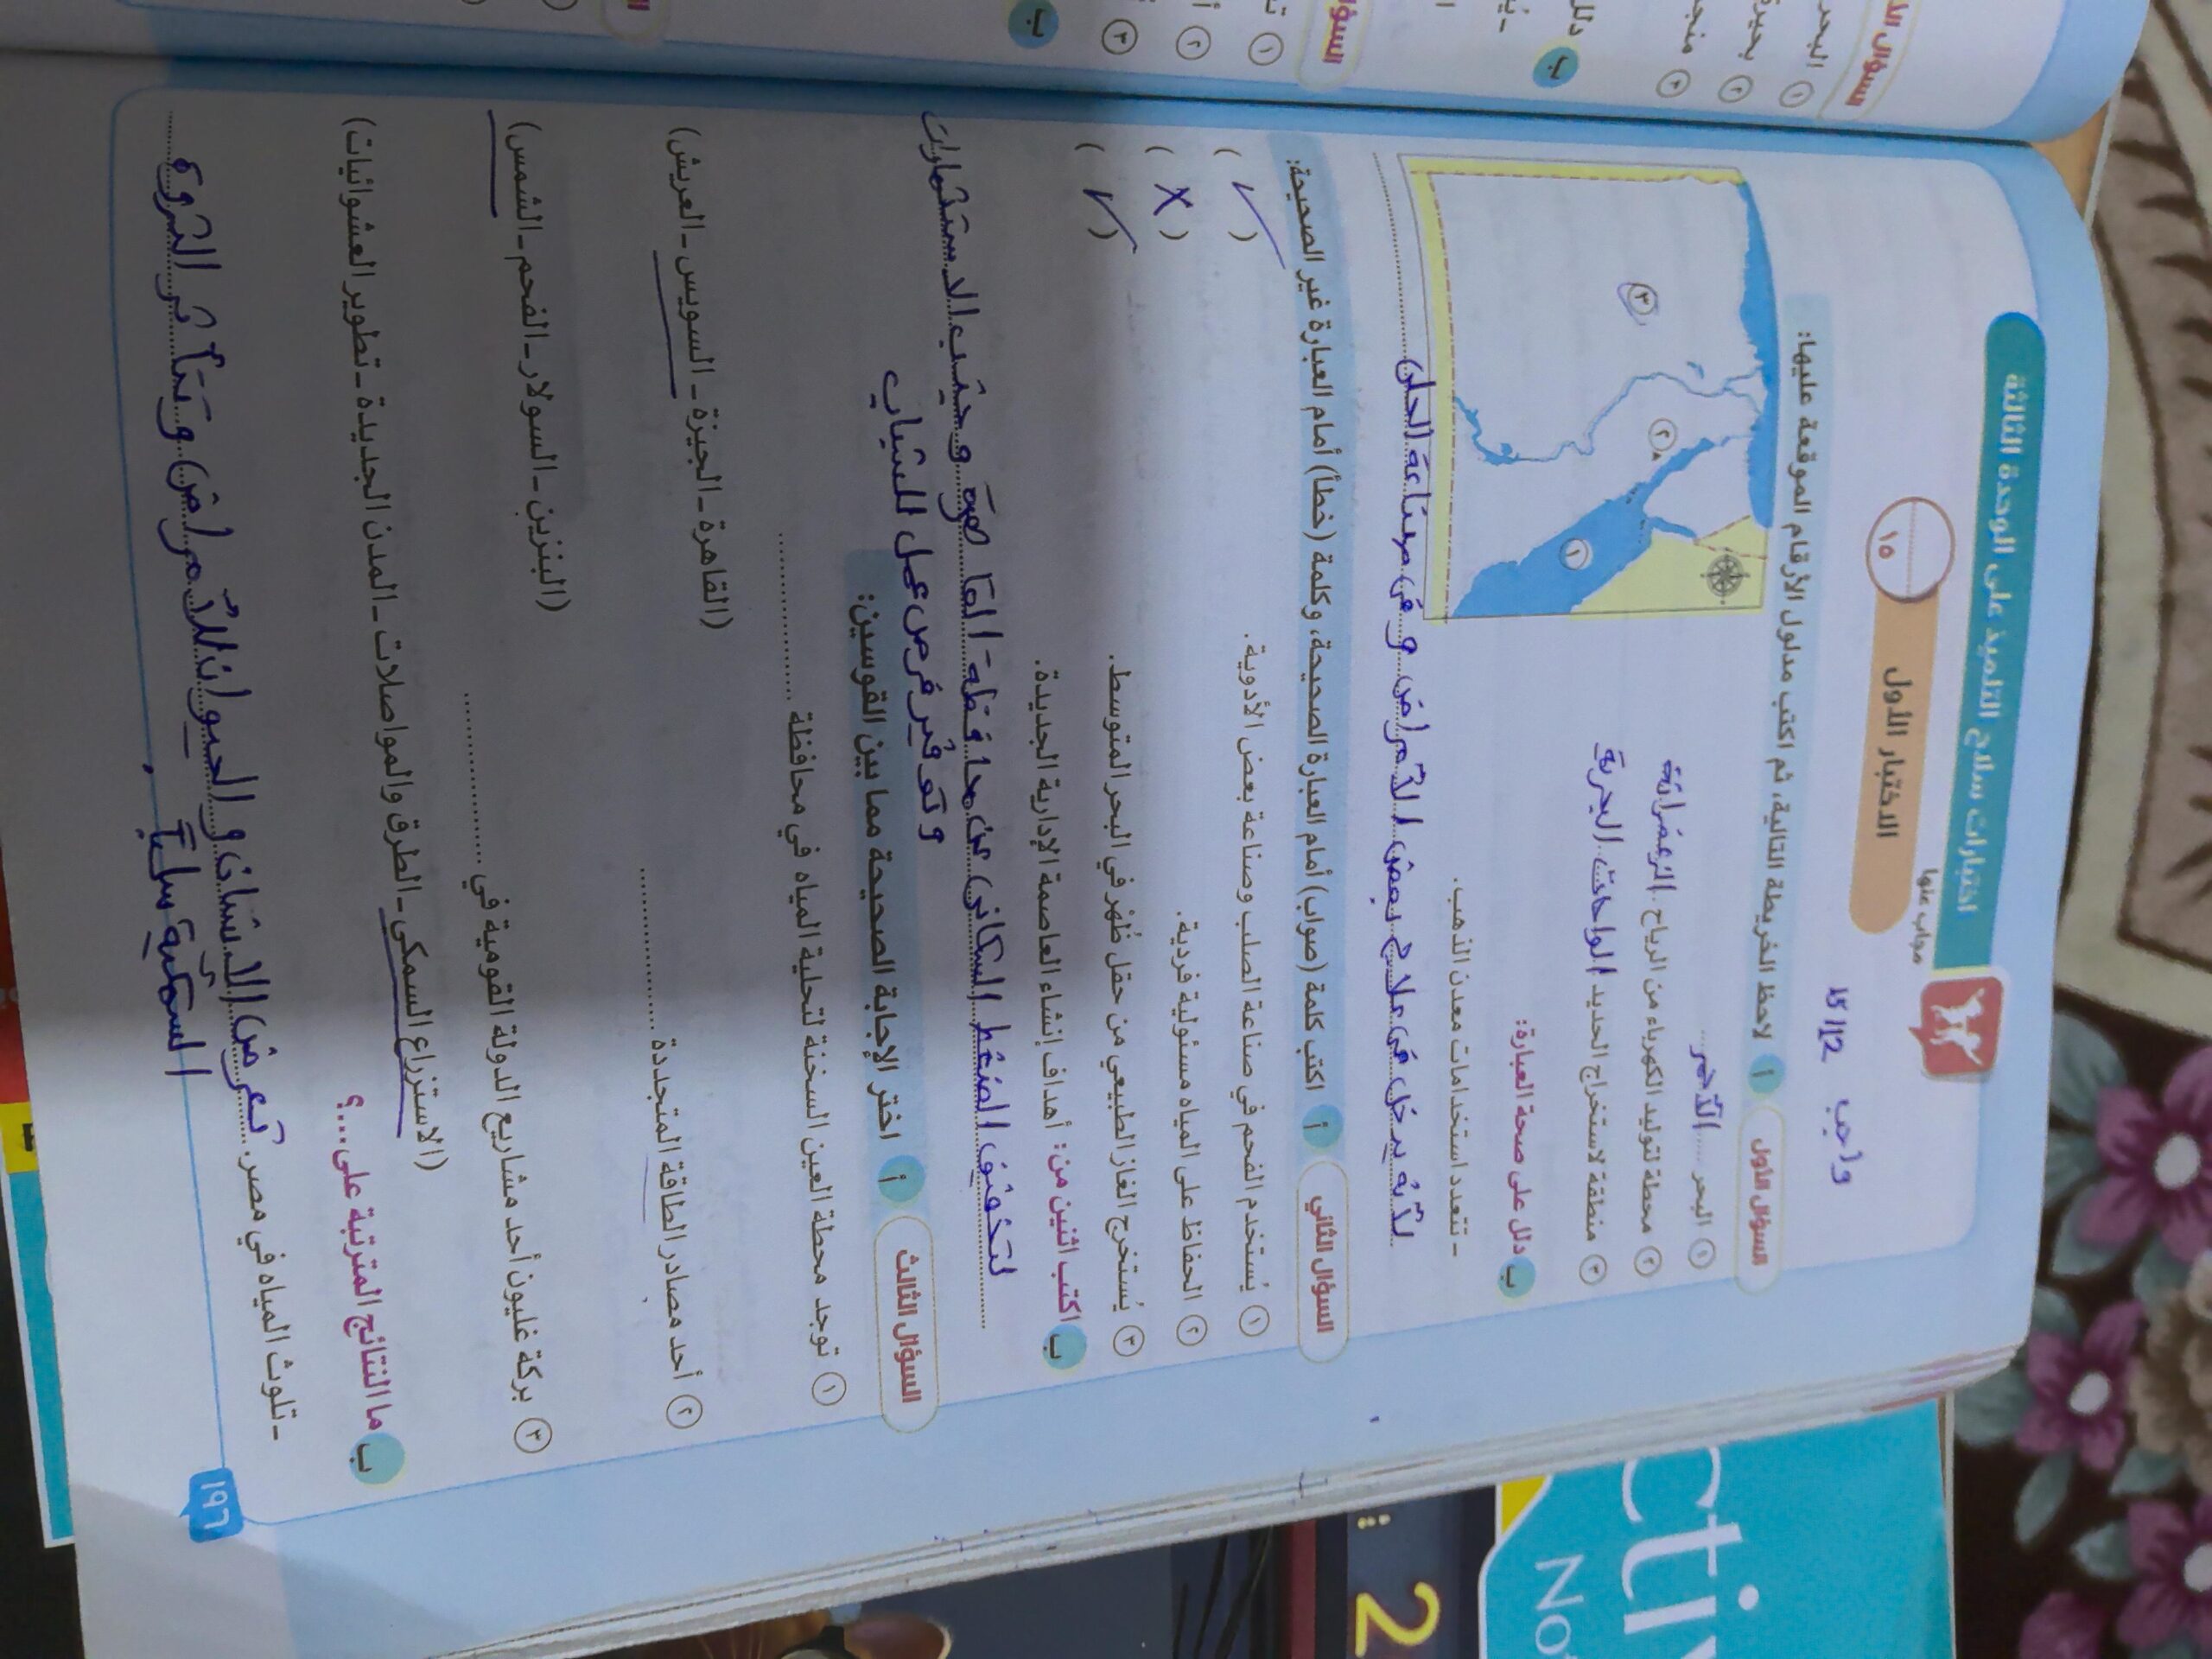 اختبارات سلاح التلميذ على الوحدة الثالثة
مجاب عنها
الاختبار الأول
١٥
واجب
السؤال الأول
أ لاحظ الخريطة التالية، ثم اكتب مدلول الأرقام الموقعة عليها:
١ البحر الأحمر
٢ محطة لتوليد الكهرباء من الرياح. الزعفرانة
٣ منطقة لاستخراج الحديد الواحات البحرية
١
٢
٣
ب دلل على صحة العبارة:
- تتعدد استخدامات معدن الذهب.
لأنه يدخل في علاج بعض الأمراض و في صناعة الحلى
السؤال الثاني
أ اكتب كلمة (صواب) أمام العبارة الصحيحة، وكلمة (خطأ) أمام العبارة غير الصحيحة:
١ يُستخدم الفحم في صناعة الصلب وصناعة بعض الأدوية. (✓)
٢ الحفاظ على المياه مسئولية فردية. (X)
٣ يُستخرج الغاز الطبيعي من حقل ظُهر في البحر المتوسط. (✓)
ب اكتب اثنين من: أهداف إنشاء العاصمة الإدارية الجديدة.
لتخفيف الضغط السكانى عن محافظة القاهرة و جذب الاستثمارات
و توفير فرص عمل للشباب
السؤال الثالث
أ اختر الإجابة الصحيحة مما بين القوسين:
١ توجد محطة العين السخنة لتحلية المياه في محافظة ............
(القاهرة - الجيزة - السويس - العريش)
٢ أحد مصادر الطاقة المتجددة ............
(البنزين - السولار - الفحم - الشمس)
٣ بركة غليون أحد مشاريع الدولة القومية في ............
(الاستزراع السمكي - الطرق والمواصلات - المدن الجديدة - تطوير العشوائيات)
ب ما النتائج المترتبة على...؟
- تلوث المياه في مصر. تعرض الإنسان و الحيوان للأمراض و تتأثر الثروة
السمكية سلبًا
١٩٦
السؤال
ب
ctiv
No
2